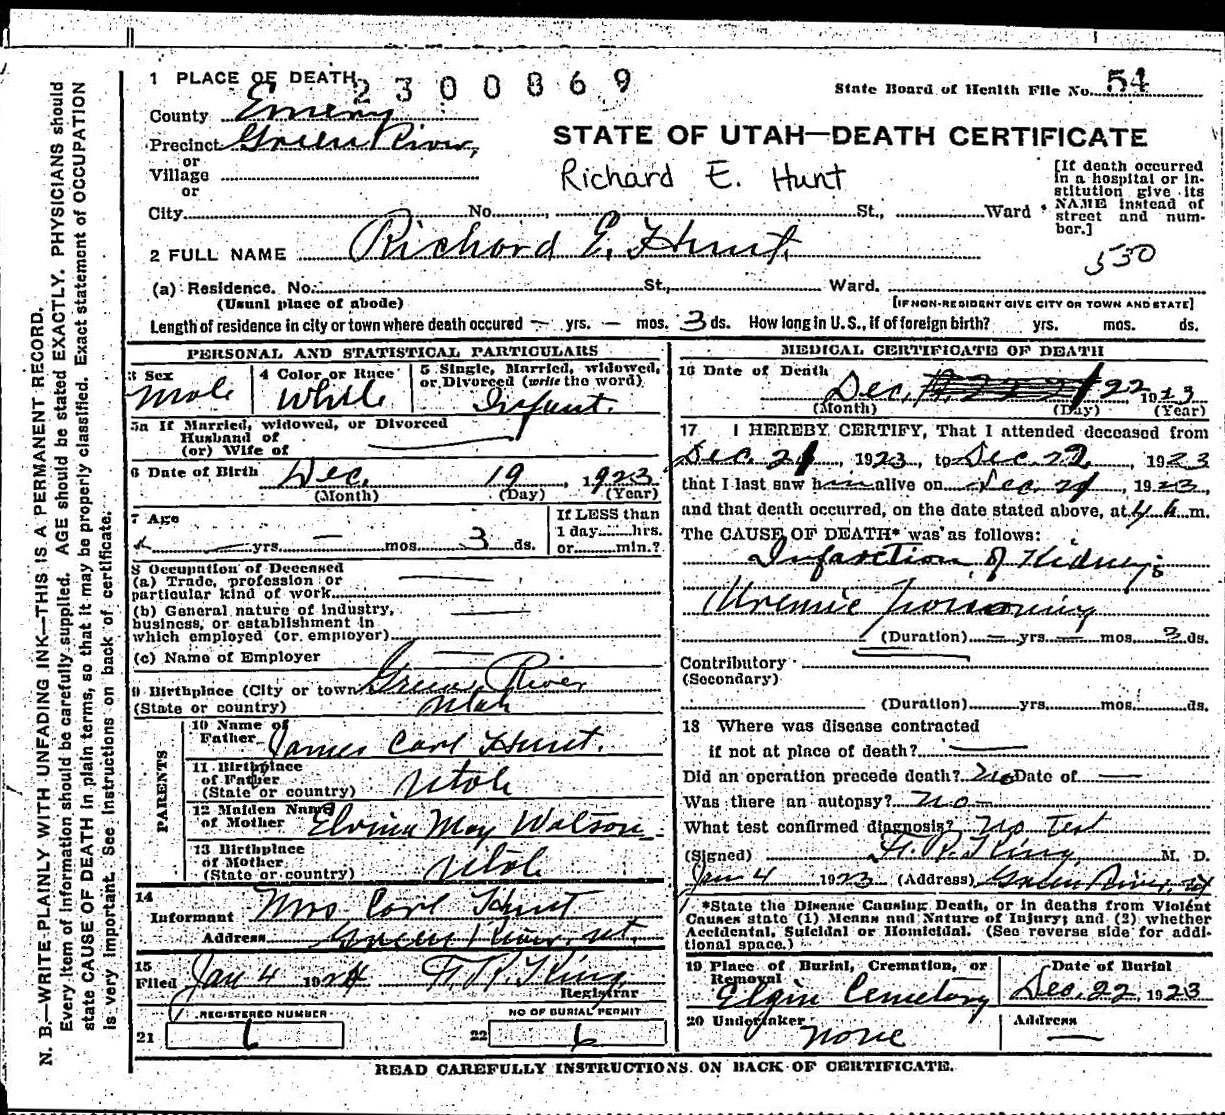 N. B.—WRITE PLAINLY WITH UNFADING INK—THIS IS A PERMANENT RECORD.
Every item of information should be carefully supplied. AGE should be stated EXACTLY. PHYSICIANS should
state CAUSE OF DEATH in plain terms, so that it may be properly classified. Exact statement of OCCUPATION
is very important. See instructions on back of certificate.
1 PLACE OF DEATH
2300869
State Board of Health File No. 54
County Emery
Precinct Green River,
or
Village
or
STATE OF UTAH—DEATH CERTIFICATE
Richard E. Hunt
[If death occurred
in a hospital or in-
stitution give its
NAME instead of
street and num-
ber.]
City No. , St., Ward
2 FULL NAME Richard E. Hunt.
530
(a) Residence. No. St., Ward.
(Usual place of abode) [IF NON-RESIDENT GIVE CITY OR TOWN AND STATE]
Length of residence in city or town where death occured — yrs. — mos. 3 ds. How long in U.S., if of foreign birth? yrs. mos. ds.
PERSONAL AND STATISTICAL PARTICULARS
3 Sex
Male
4 Color or Race
White
5 Single, Married, widowed,
or Divorced (write the word)
Infant.
5a If Married, widowed, or Divorced
Husband of
(or) Wife of
6 Date of Birth Dec. 19, 1923
(Month) (Day) (Year)
7 Age
— yrs. — mos. 3 ds.
If LESS than
1 day......hrs.
or......min.?
8 Occupation of Deceased
(a) Trade, profession or
particular kind of work
(b) General nature of industry,
business, or establishment in
which employed (or employer)
(c) Name of Employer
9 Birthplace (City or town Green River
(State or country) Utah
PARENTS
10 Name of
Father James Carl Hunt.
11 Birthplace
of Father
(State or country) Utah
12 Maiden Name
of Mother Elvina May Watson
13 Birthplace
of Mother
(State or country) Utah
14
Informant Mrs Carl Hunt
Address Green River, Ut.
15
Filed Jan 4 1924 Registrar
21 REGISTERED NUMBER
6
22 NO OF BURIAL PERMIT
6
MEDICAL CERTIFICATE OF DEATH
16 Date of Death
Dec. 22 1923
(Month) (Day) (Year)
17 I HEREBY CERTIFY, That I attended deceased from
Dec. 21, 1923, to Dec. 22, 1923
that I last saw him alive on Dec 21, 1923,
and that death occurred, on the date stated above, at 4 a m.
The CAUSE OF DEATH* was as follows:
Infarction of Kidney;
Uremic Poisoning
(Duration) — yrs. — mos. 3 ds.
Contributory
(Secondary)
(Duration) yrs. mos. ds.
18 Where was disease contracted
if not at place of death? —
Did an operation precede death? No Date of —
Was there an autopsy? No —
What test confirmed diagnosis? No Test
(Signed) King, M. D.
Jan 4 1923 (Address) Green River, Ut
*State the Disease Causing Death, or in deaths from Violent
Causes state (1) Means and Nature of Injury; and (2) whether
Accidental, Suicidal or Homicidal. (See reverse side for addi-
tional space.)
19 Place of Burial, Cremation, or
Removal
Elgin Cemetery
Date of Burial
Dec. 22, 1923
20 Undertaker
None
Address
—
READ CAREFULLY INSTRUCTIONS ON BACK OF CERTIFICATE.